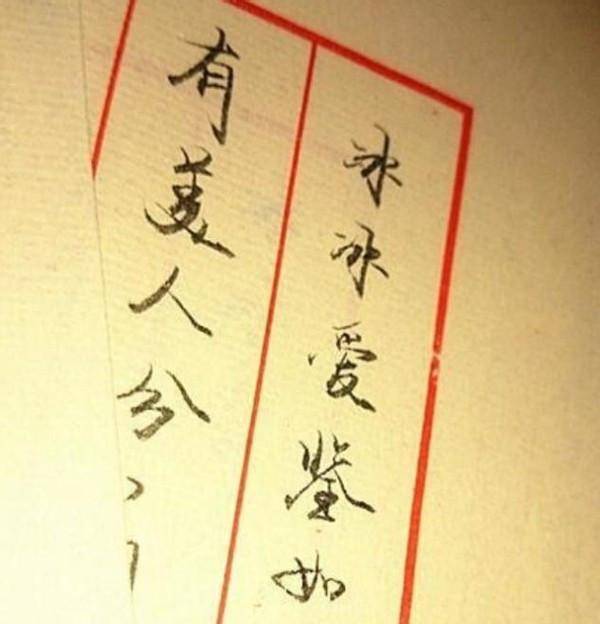 冰冰爱鉴如
有美人兮